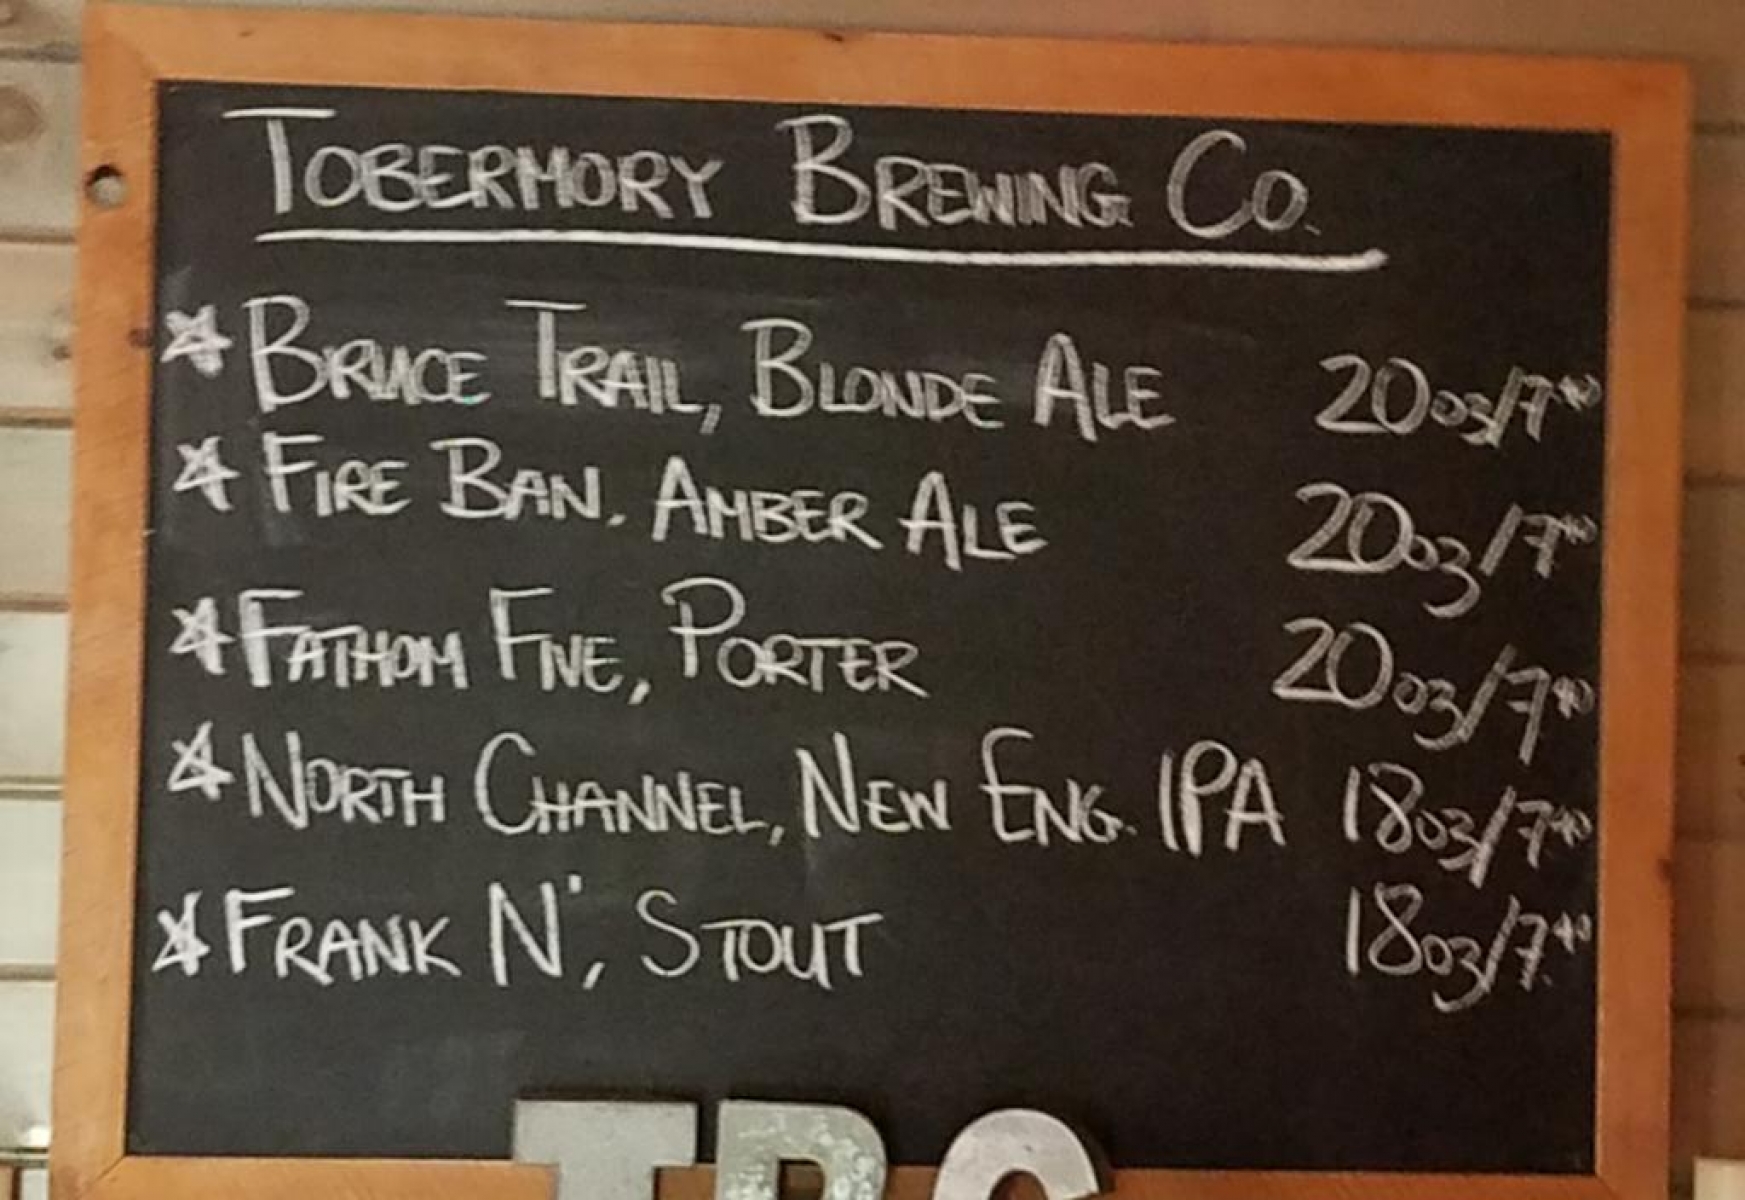 TOBERMORY BREWING CO.
BRUCE TRAIL, BLONDE ALE 20oz/7⁴⁰
FIRE BAN. AMBER ALE 20oz/7⁴⁰
FATHOM FIVE, PORTER 20oz/7⁴⁰
NORTH CHANNEL, NEW ENG. IPA 18oz/7⁴⁰
FRANK N', STOUT 18oz/7⁴⁰
TBC